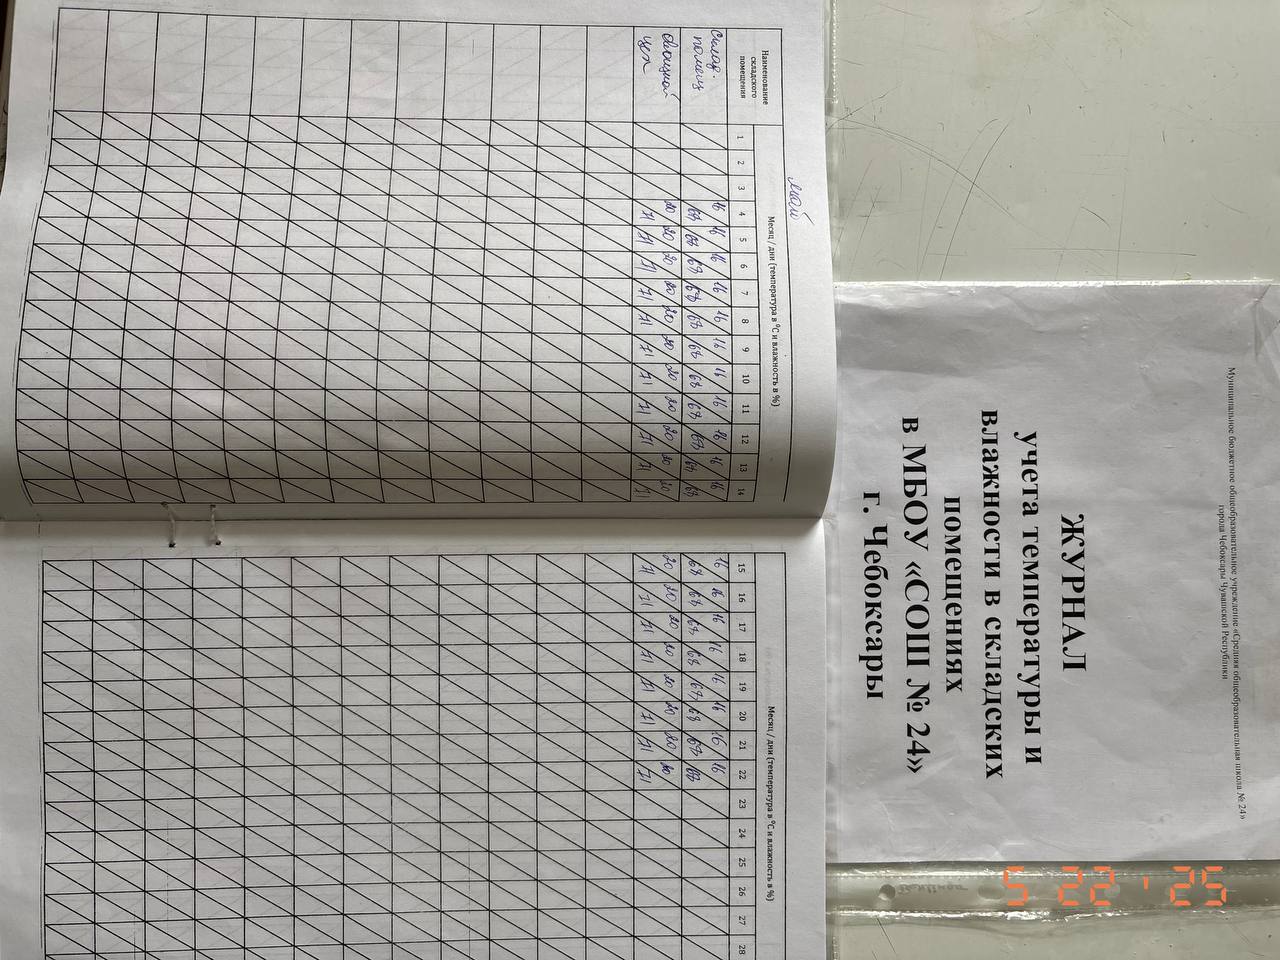 Муниципальное бюджетное общеобразовательное учреждение «Средняя общеобразовательная школа № 24»
города Чебоксары Чувашской Республики
ЖУРНАЛ
учета температуры и
влажности в складских
помещениях
в МБОУ «СОШ № 24»
г. Чебоксары
май
Наименование
складского
помещения
Месяц / дни (температура в °С и влажность в %)
1 2 3 4 5 6 7 8 9 10 11 12 13 14
склад.
помещ
16 16 16 16 16 16 16 16 16 16 16
67 67 67 67 67 67 67 67 67 67 67
овощной
цех
20 20 20 20 20 20 20 20 20 20 20
71 71 71 71 71 71 71 71 71 71 71
Месяц / дни (температура в °С и влажность в %)
15 16 17 18 19 20 21 22 23 24 25 26 27 28
16 16 16 16 16 16 16 16
67 67 67 67 67 67 67 67
20 20 20 20 20 20 20 20
71 71 71 71 71 71 71 71
5 22 '25